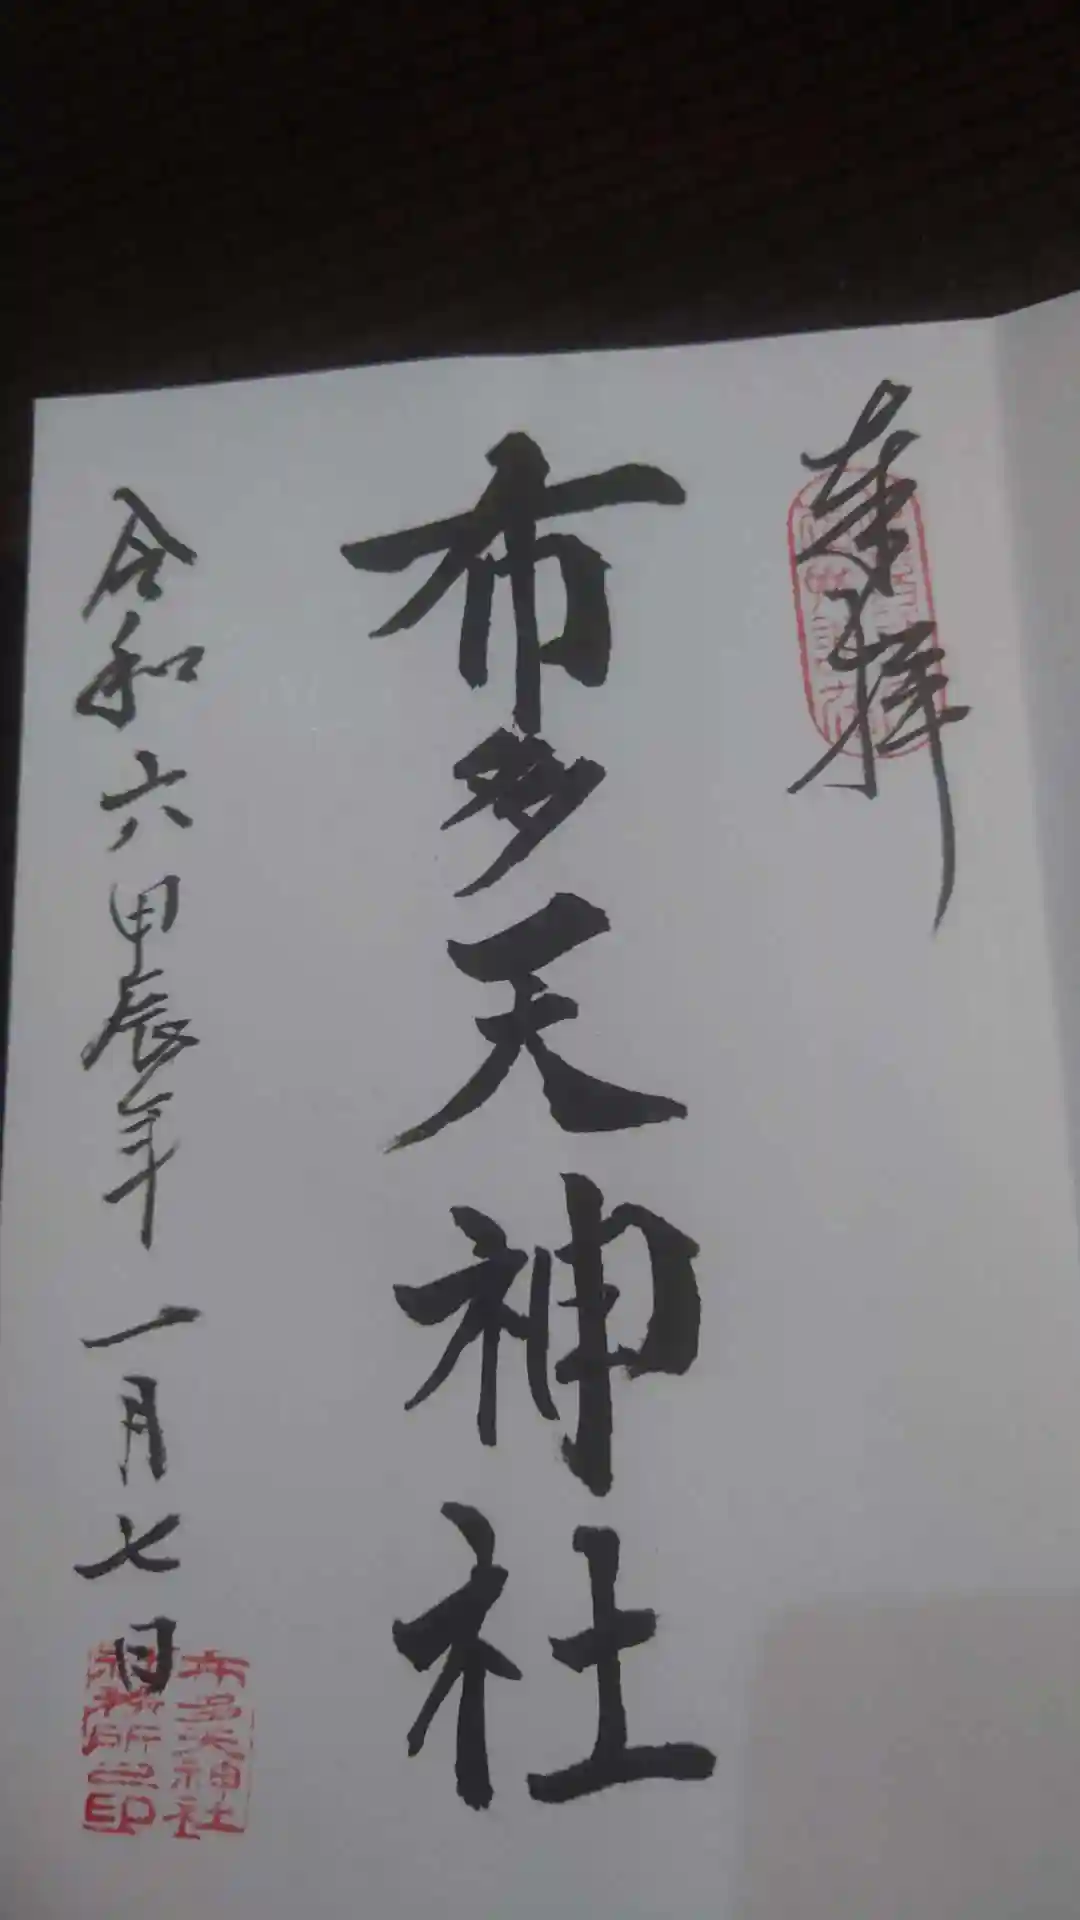 奉拝
布多天神社
令和六甲辰年一月七日
布多天神社
社務所之印